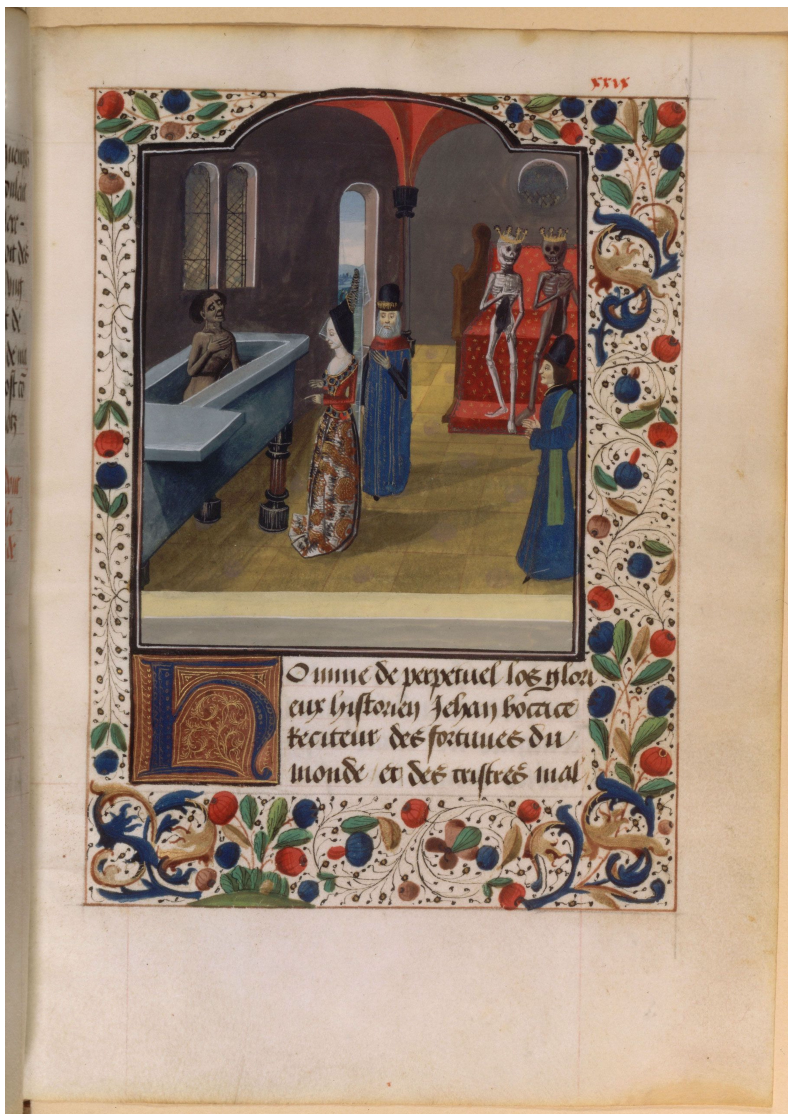 xxix
Homme de perpetuel los glori
eux historien Jehan boccace
Reciteur des fortunes du
monde et des tristres mal